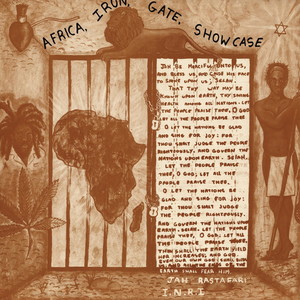 AFRICA, IRON, GATE, SHOWCASE
JAH BE MERCIFUL UNTO US,
AND BLESS US, AND CAUSE HIS FACE
TO SHINE UPON US; SELAH.
THAT THY WAY MAY BE
KNOWN UPON EARTH, THY SAVING
HEALTH AMONG ALL NATIONS. LET
THE PEOPLE PRAISE THEE, O GOD
LET ALL THE PEOPLE PRAISE THEE
O LET THE NATIONS BE GLAD
AND SING FOR JOY: FOR
THOU SHALT JUDGE THE PEOPLE
RIGHTEOUSLY, AND GOVERN THE
NATIONS UPON EARTH. SELAH.
LET THE PEOPLE PRAISE
THEE, O GOD; LET ALL THE
PEOPLE PRAISE THEE.
O LET THE NATIONS BE
GLAD AND SING FOR JOY:
FOR THOU SHALT JUDGE
THE PEOPLE RIGHTEOUSLY,
AND GOVERN THE NATIONS
UPON EARTH. SELAH. LET THE PEOPLE
PRAISE THEE, O GOD; LET ALL
THE PEOPLE PRAISE THEE,
THEN SHALL THE EARTH YIELD
HER INCREASE; AND GOD,
EARTH SHALL FEAR HIM
JAH RASTAFARI
I.N.R.I.